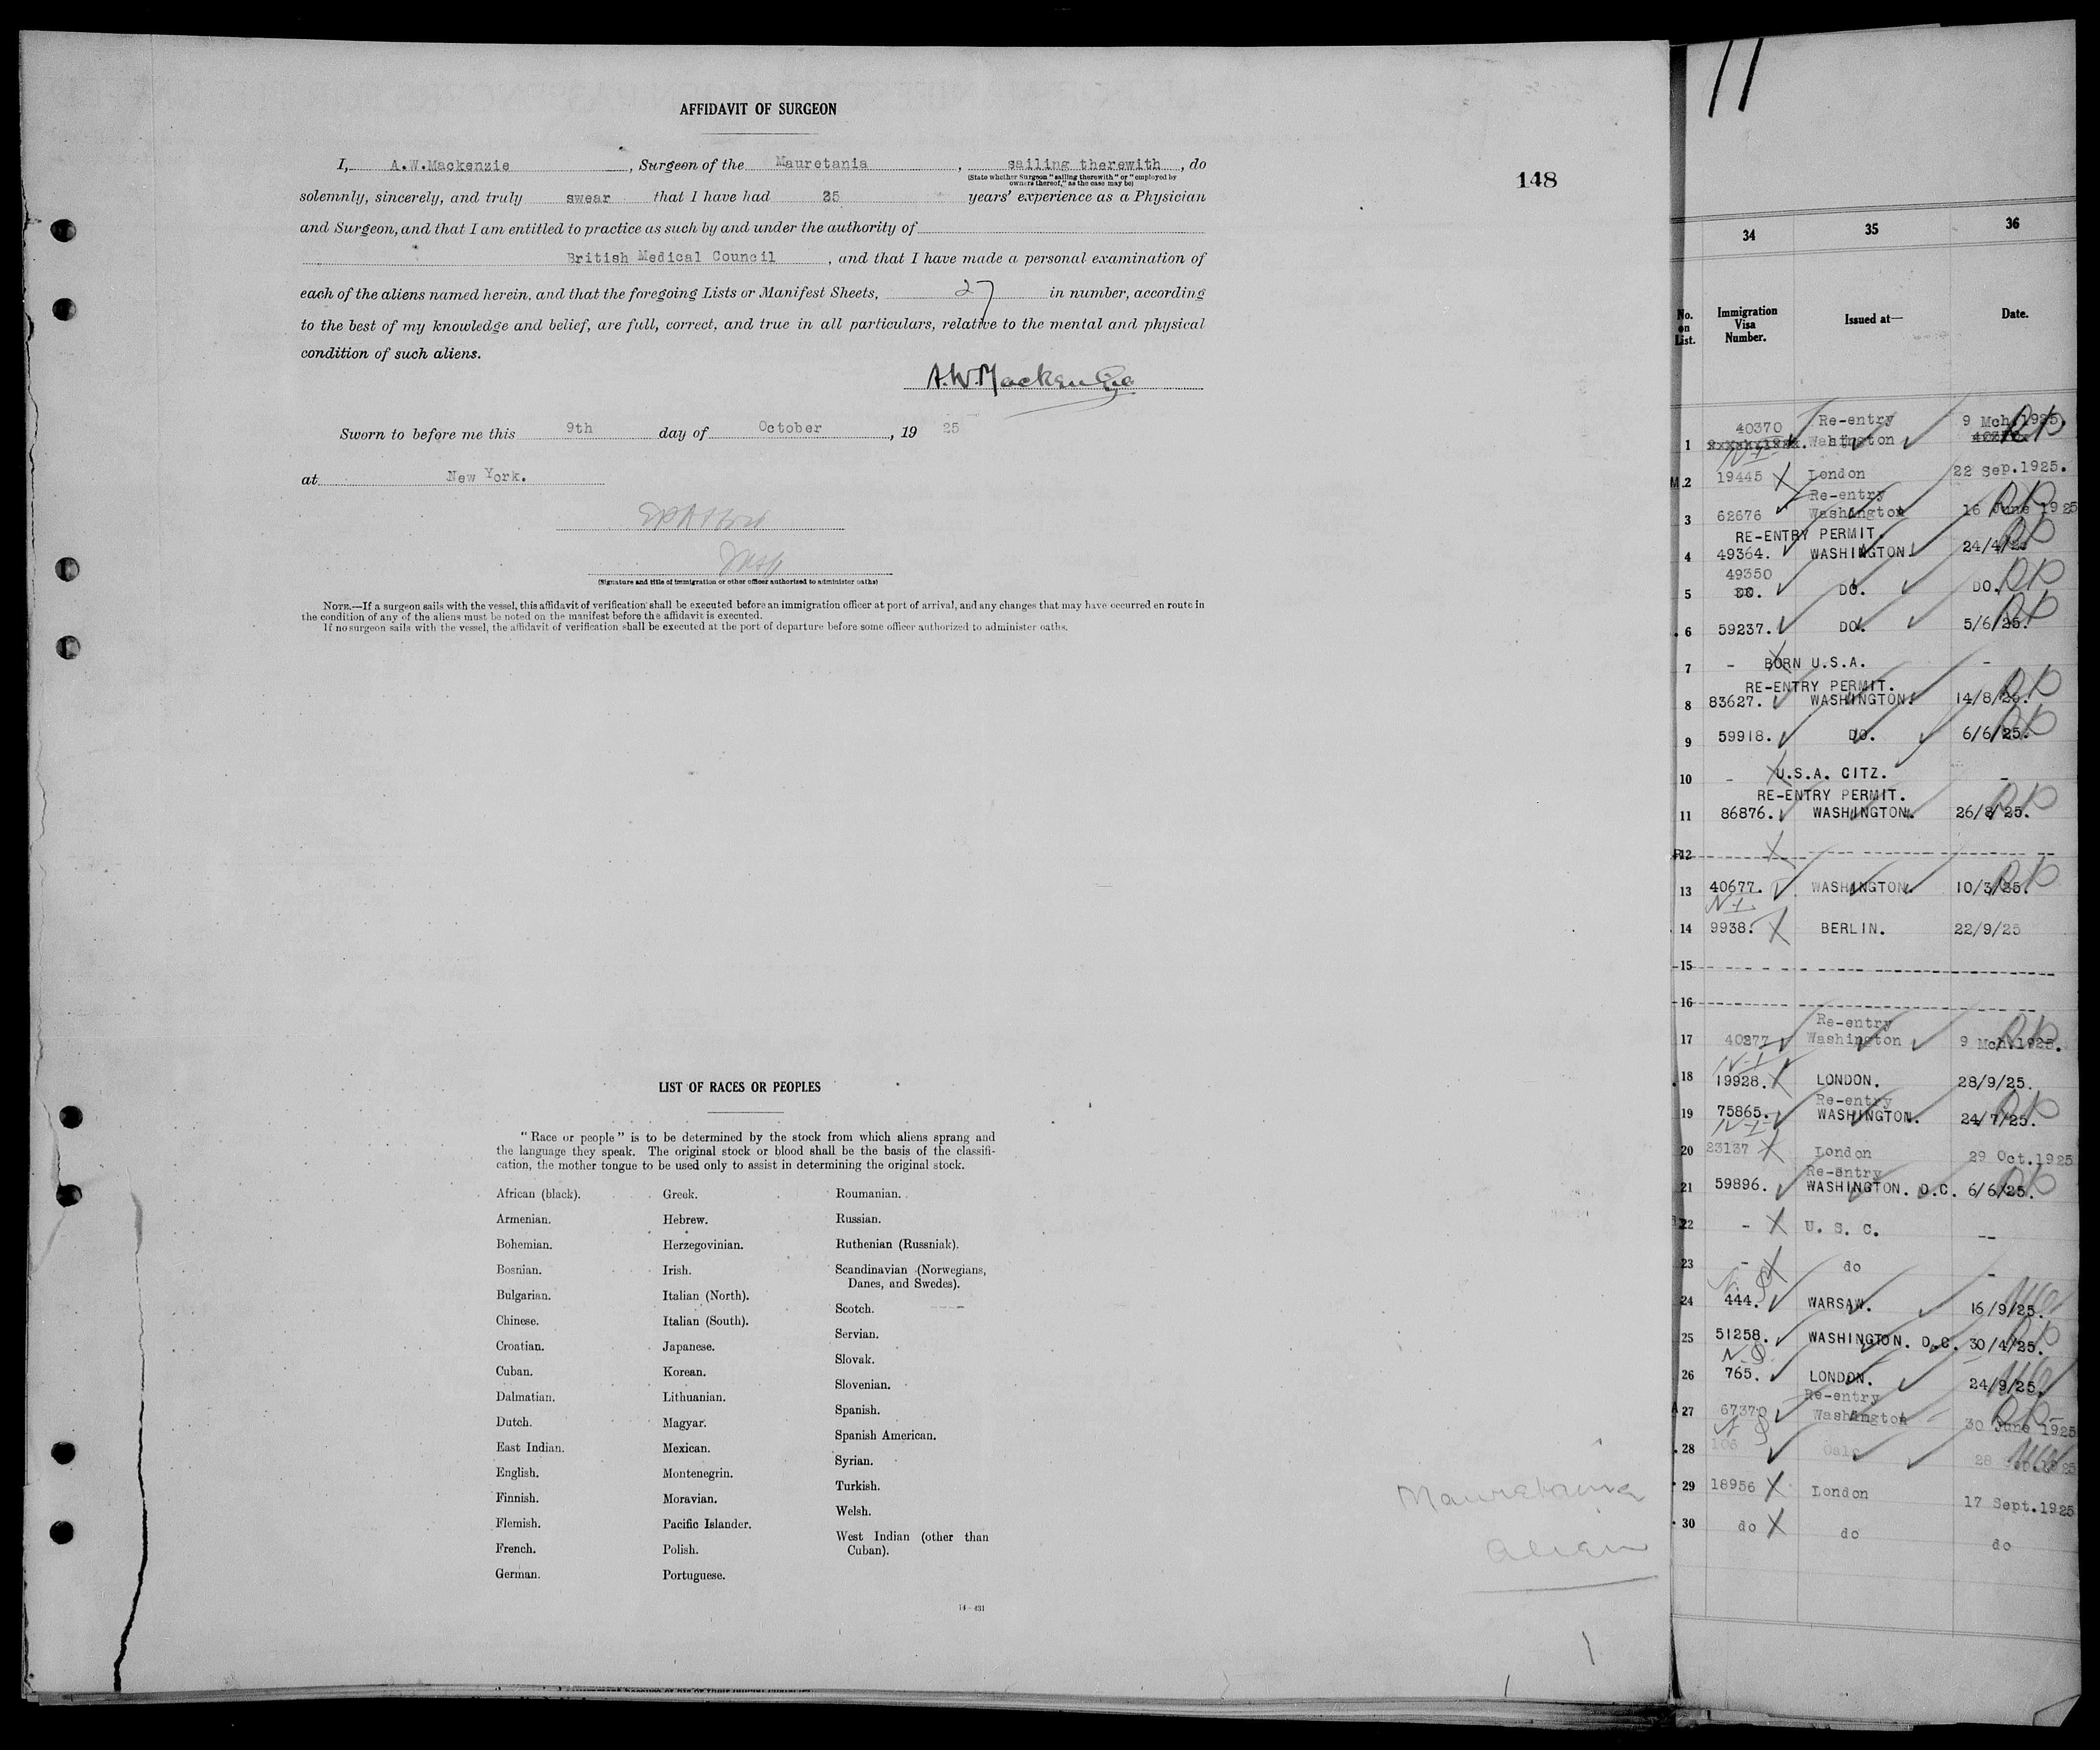 AFFIDAVIT OF SURGEON
I, A.W.Mackenzie, Surgeon of the Mauretania, sailing therewith, do
(State whether Surgeon "sailing therewith" or "employed by
owners thereof," as the case may be)
solemnly, sincerely, and truly swear that I have had 25 years' experience as a Physician
and Surgeon, and that I am entitled to practice as such by and under the authority of
British Medical Council, and that I have made a personal examination of
each of the aliens named herein, and that the foregoing Lists or Manifest Sheets, 27 in number, according
to the best of my knowledge and belief, are full, correct, and true in all particulars, relative to the mental and physical
condition of such aliens.
A.W.Mackenzie
Sworn to before me this 9th day of October, 19 25
at New York.
(Signature and title of immigration or other officer authorized to administer oaths)
NOTE.—If a surgeon sails with the vessel, this affidavit of verification shall be executed before an immigration officer at port of arrival, and any changes that may have occurred en route in
the condition of any of the aliens must be noted on the manifest before the affidavit is executed.
If no surgeon sails with the vessel, the affidavit of verification shall be executed at the port of departure before some officer authorized to administer oaths.
148
LIST OF RACES OR PEOPLES
"Race or people" is to be determined by the stock from which aliens sprang and
the language they speak. The original stock or blood shall be the basis of the classifi-
cation, the mother tongue to be used only to assist in determining the original stock.
African (black).
Armenian.
Bohemian.
Bosnian.
Bulgarian.
Chinese.
Croatian.
Cuban.
Dalmatian.
Dutch.
East Indian.
English.
Finnish.
Flemish.
French.
German.
Greek.
Hebrew.
Herzegovinian.
Irish.
Italian (North).
Italian (South).
Japanese.
Korean.
Lithuanian.
Magyar.
Mexican.
Montenegrin.
Moravian.
Pacific Islander.
Polish.
Portuguese.
Roumanian.
Russian.
Ruthenian (Russniak).
Scandinavian (Norwegians,
Danes, and Swedes).
Scotch.
Servian.
Slovak.
Slovenian.
Spanish.
Spanish American.
Syrian.
Turkish.
Welsh.
West Indian (other than
Cuban).
14-431
Mauretania
Alien
11
34 35 36
No. on List. Immigration Visa Number. Issued at— Date.
Re-entry
1 40370 Washington 9 Mch.1925.
NI
2 19445 London 22 Sep.1925.
Re-entry
3 62676 Washington 16 June 1925
RE-ENTRY PERMIT.
4 49364. WASHINGTON. 24/4/25
49350
5 DO. DO. DO.
6 59237. DO. 5/6/25.
7 - BORN U.S.A. -
RE-ENTRY PERMIT.
8 83627. WASHINGTON. 14/8/25.
9 59918. DO. 6/6/25.
10 - U.S.A. CITZ. -
RE-ENTRY PERMIT.
11 86876. WASHINGTON. 26/8/25.
12
13 40677. WASHINGTON. 10/3/25.
NI
14 9938. BERLIN. 22/9/25
15
16
Re-entry
17 40277 Washington 9 Mch.1925.
NI
18 19928. LONDON. 28/9/25.
Re-entry
19 75865. WASHINGTON. 24/7/25.
NI
20 23137 London 29 Oct.1925
Re-entry
21 59896. WASHINGTON. D.C. 6/6/25.
22 - U. S. C. --
23 - do -
24 444. WARSAW. 16/9/25.
25 51258. WASHINGTON. D.C. 30/4/25.
26 765. LONDON. 24/9/25.
Re-entry
27 67370 Washington 30 June 1925
28
29 18956 London 17 Sept.1925
30 do do do